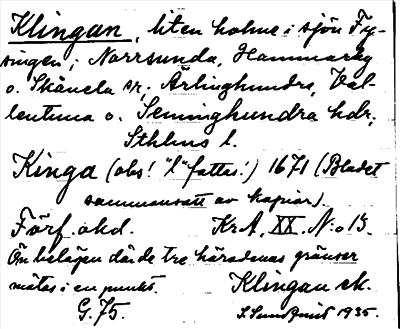 Klingan, liten holme i sjön Fy-
singen, i Norrsunda, Hammarby
o. Skånela sr; Ärlinghundra, Val-
lentuna o. Seminghundra hdr,
Sthlms l.
Kinga (obs! "l" fattas!) 1671 (Bladet
sammansatt av kopior).
Förf. okd. Kr.A. XX. N:o 15.
Ön belägen där de tre häradenas gränser
mötas i en punkt. Klingan ek.
G.75. S. Sundquist 1935.